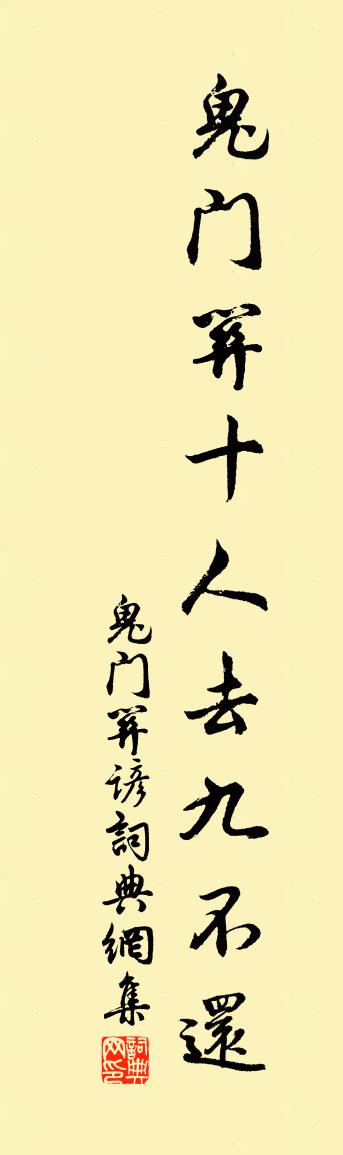 鬼门关十人去九不還
鬼门关谚詞典網集
詞典网印